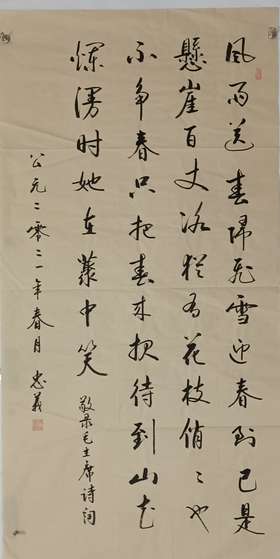 風雨送春歸飛雪迎春到已是
懸崖百丈冰猶有花枝俏〻也
不争春只把春来报待到山花
爛漫时她在叢中笑
敬录毛主席诗词
公元二零二一年春月 忠義